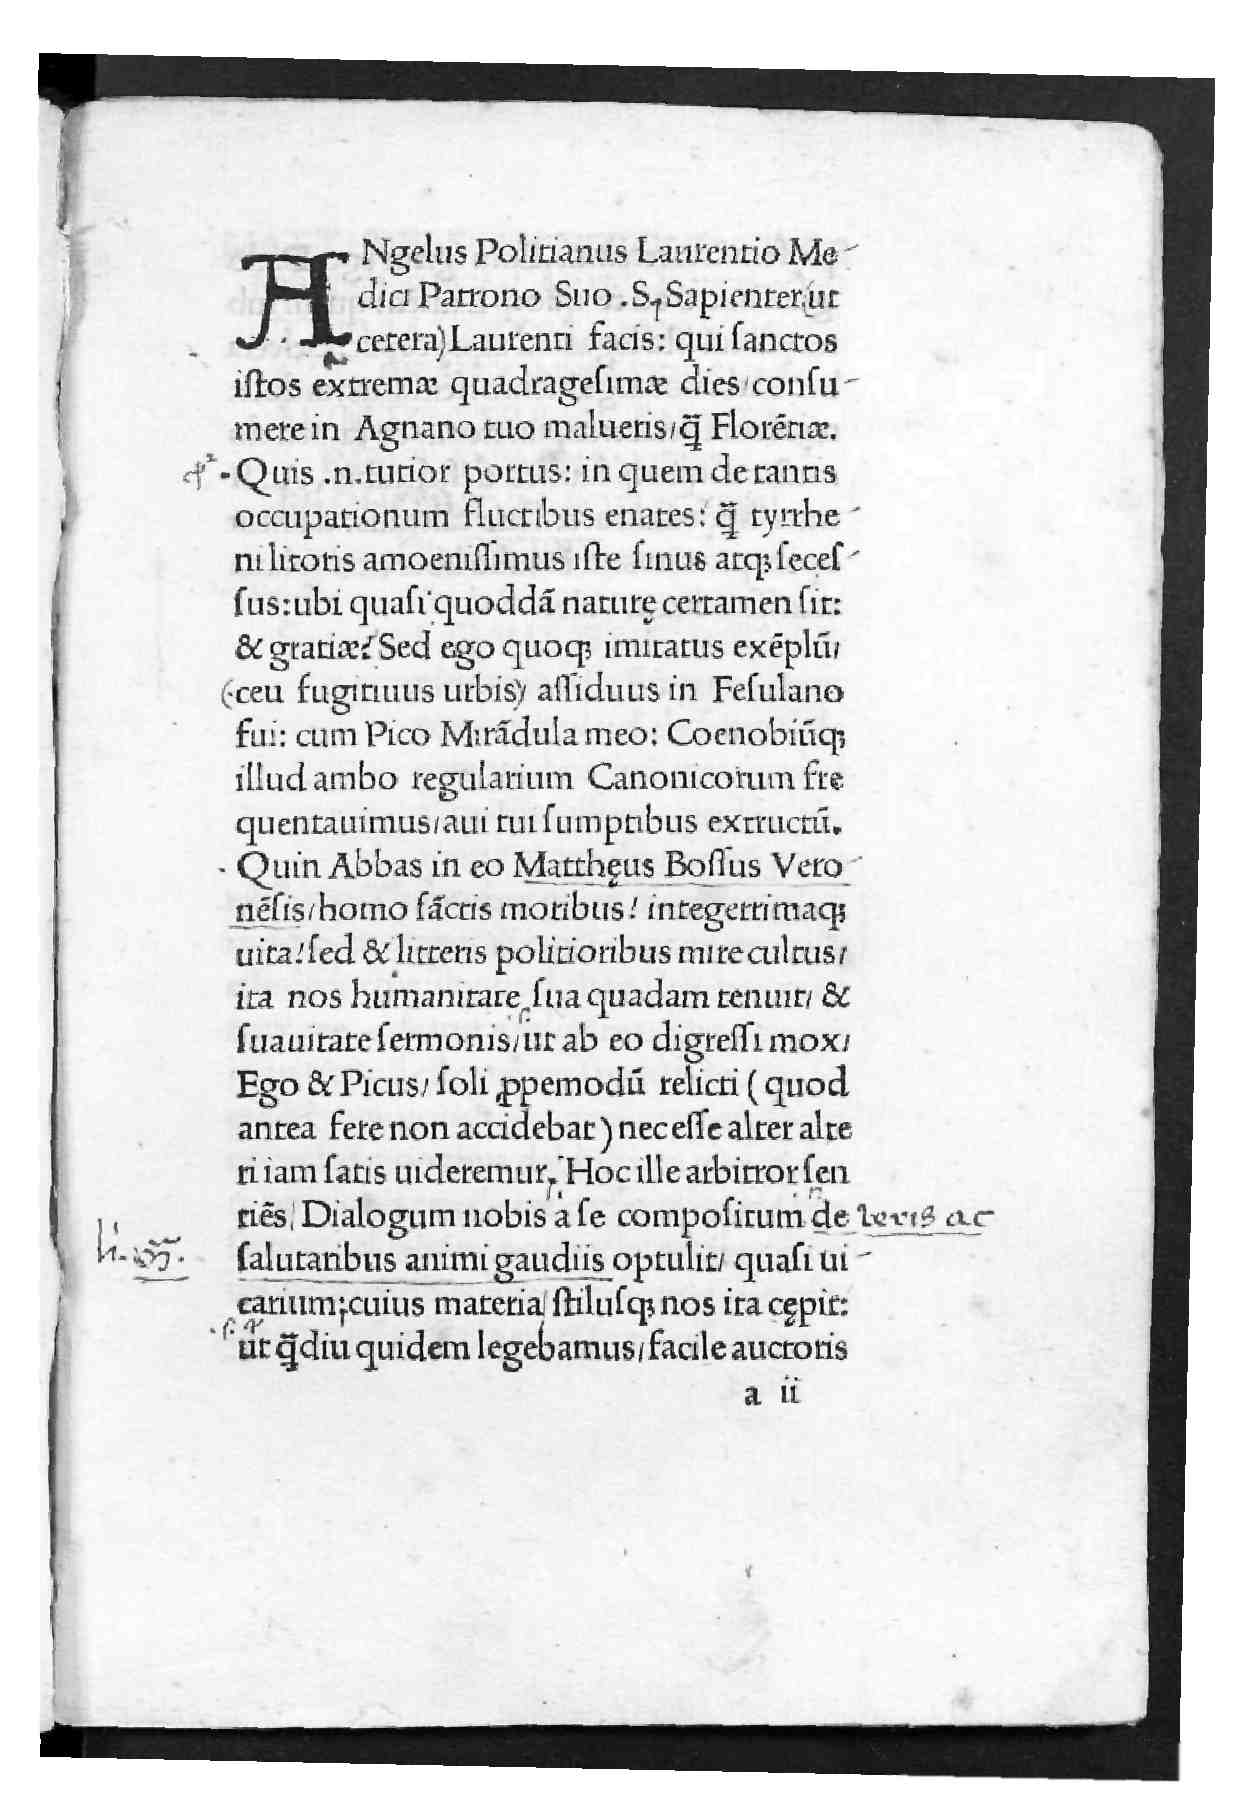 ANgelus Politianus Laurentio Me-
dici Patrono Suo .S. Sapienter(ut
cetera)Laurenti facis: qui ſanctos
iſtos extremæ quadrageſimæ dies/conſu-
mere in Agnano tuo malueris/q̃ Florẽtiæ.
Quis .n.tutior portus: in quem de tantis
occupationum fluctibus enates: q̃ tyrrhe-
ni litoris amoeniſſimus iſte ſinus atq; ſeceſ-
ſus: ubi quaſi quoddã naturę certamen ſit:
& gratiæ? Sed ego quoq; imitatus exẽplũ/
(ceu fugitiuus urbis) aſſiduus in Feſulano
fui: cum Pico Mirãdula meo: Coenobiũq;
illud ambo regularium Canonicorum fre
quentauimus/aui tui ſumptibus extructũ.
Quin Abbas in eo Matthęus Boſſus Vero-
nẽſis/homo ſãctis moribus! integerrimaq;
uita! ſed & litteris politioribus mire cultus/
ita nos humanitate ſua quadam tenuit/ &
ſuauitate ſermonis/ut ab eo digreſſi mox/
Ego & Picus/ ſoli ꝓpemodũ relicti (quod
antea fere non accidebat) neceſſe alter alte
ri iam ſatis uideremur. Hoc ille arbitror ſen
tiẽs/ Dialogum nobis a ſe compoſitum de ueris ac
ſalutaribus animi gaudiis optulit/ quaſi ui-
carium: cuius materia/ ſtiluſq; nos ita cępit:
ut q̃diu quidem legebamus/facile auctoris
a ii